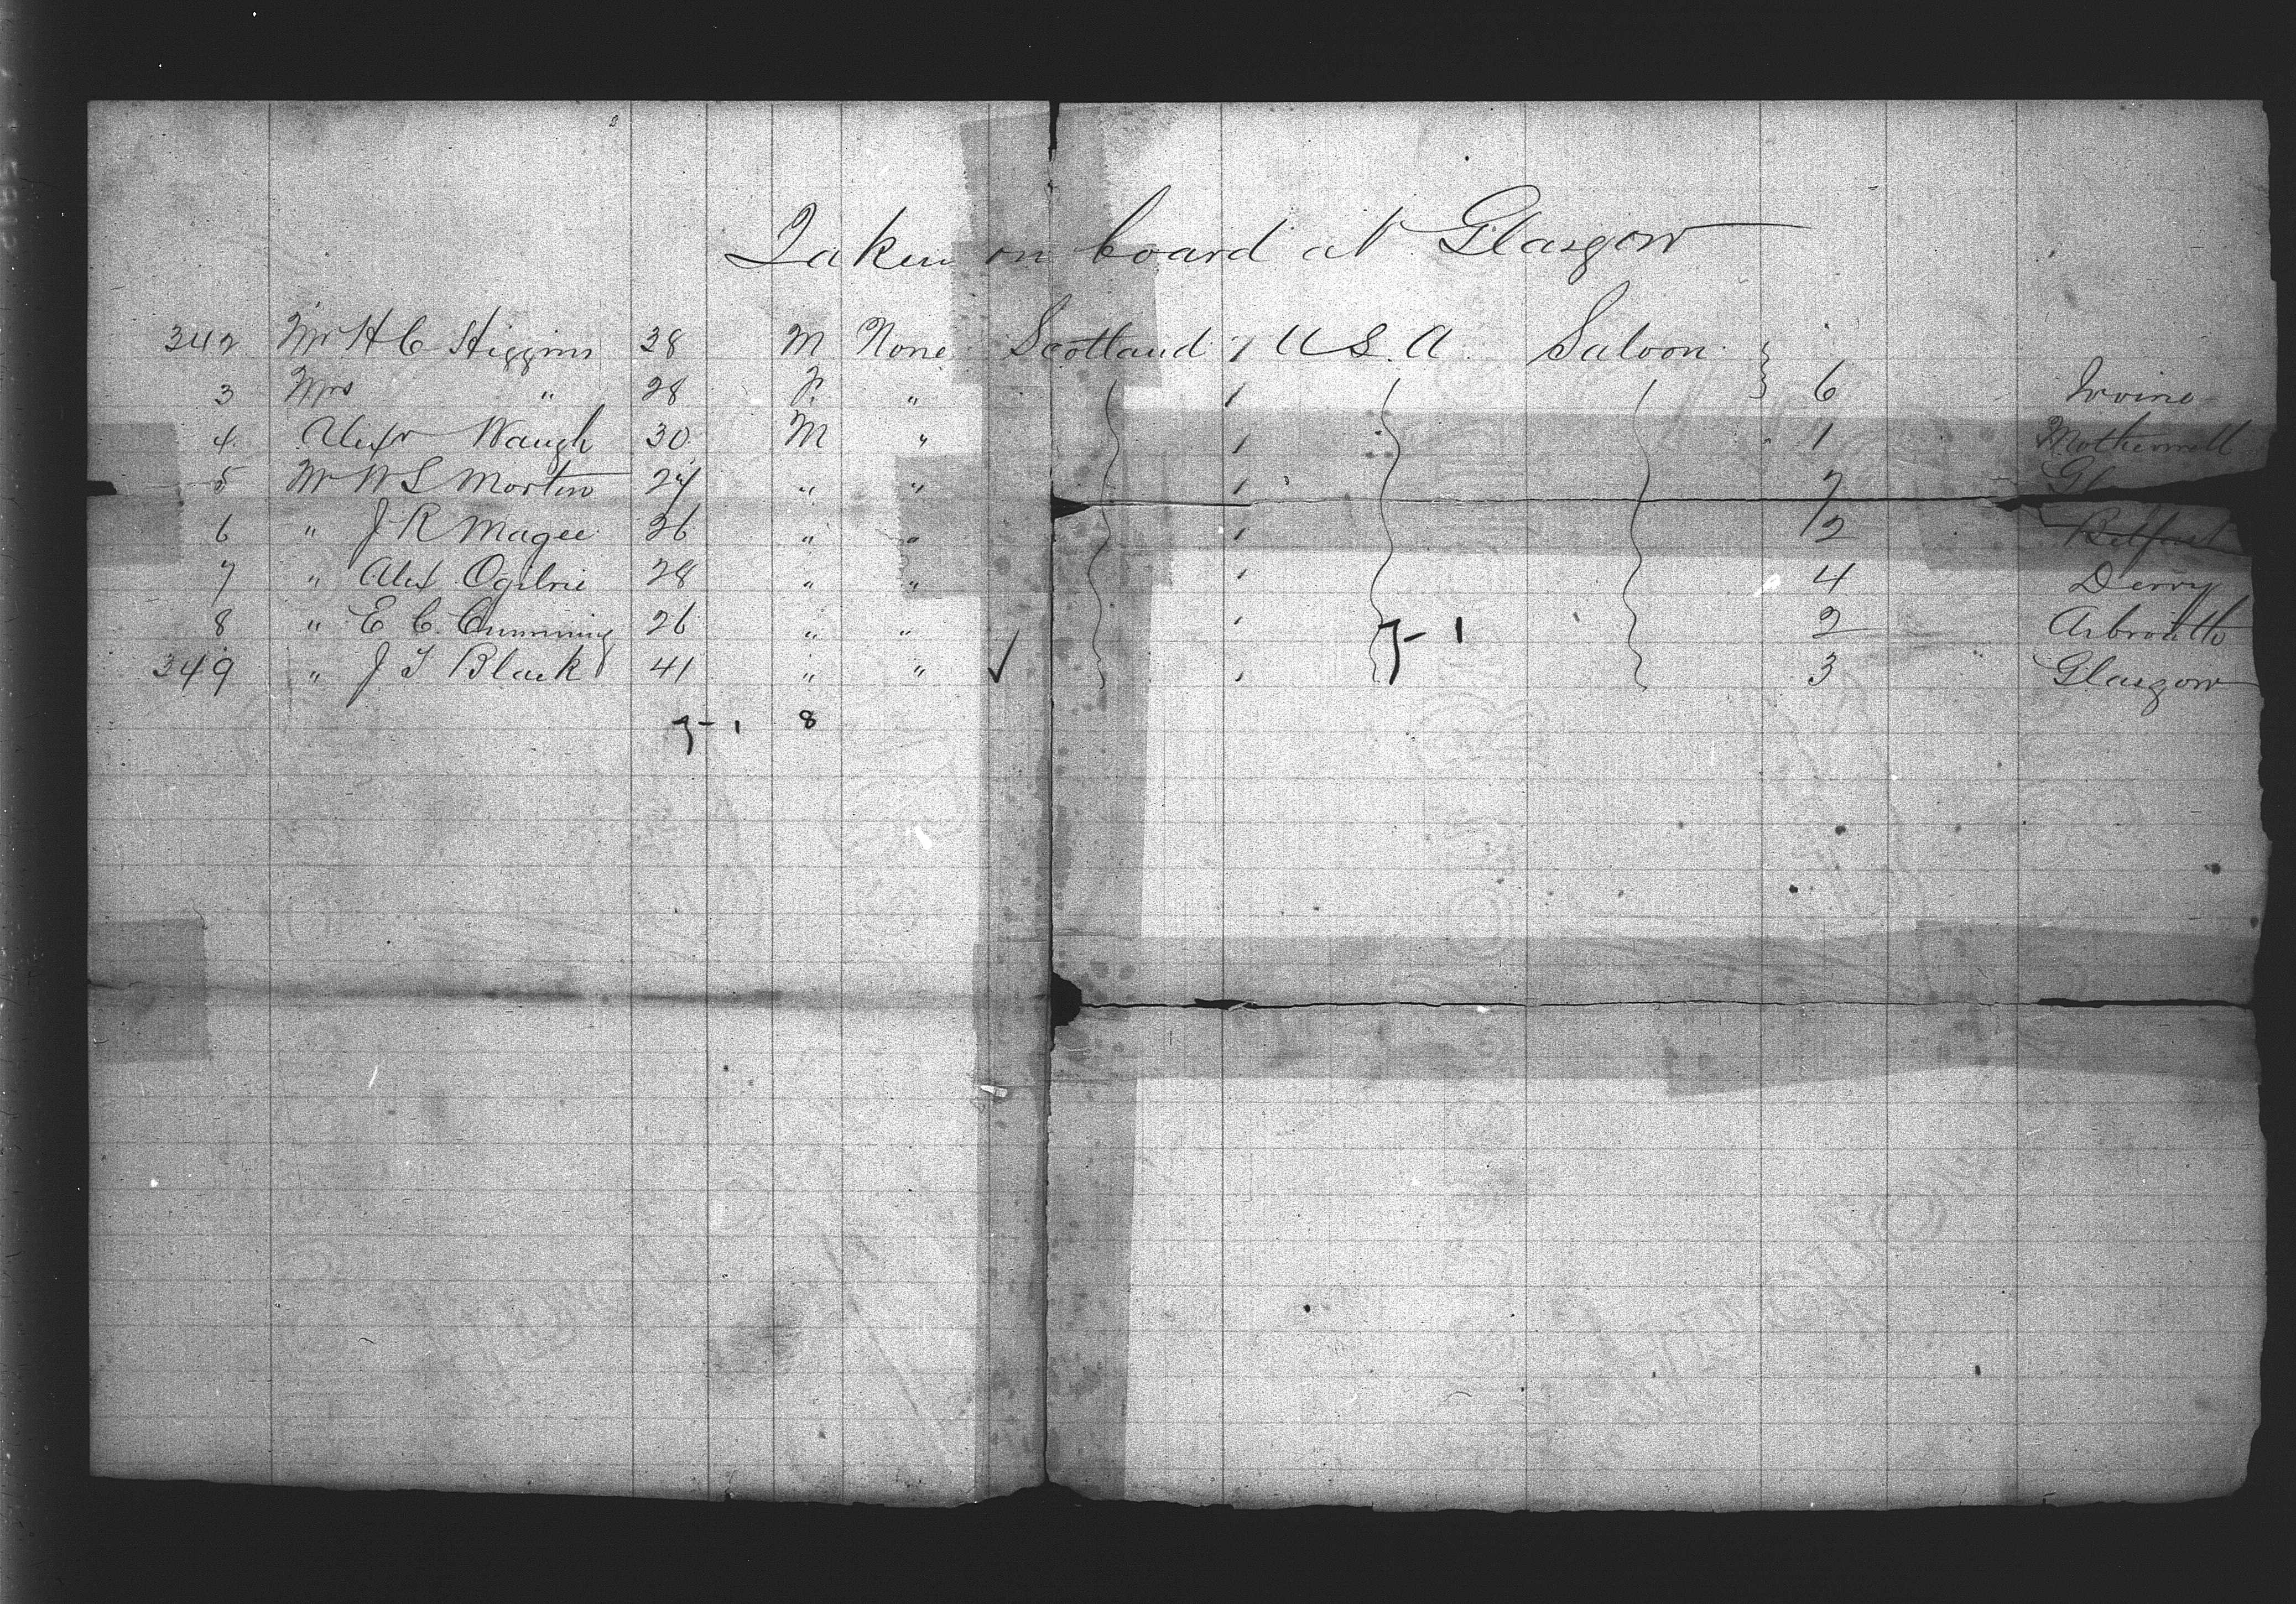 Taken on board at Glasgow
342 Mr H C Higgins 38 M None Scotland 1 U S. A. Saloon
3 Mrs " 28 F. " 1 6 Irvine
4 Alexr Waugh 30 M " 1 1 Motherwell
5 Mr W S Morton 24 " " 1 7
6 " J R Magee 26 " " 1 12 Belfast
7 " Alex Ogilvie 28 " " 1 4 Derry
8 " E C. Cumming 26 " " 1 7-1 2 Arbroath
349 " J T Black 41 " " ✓ 1 3 Glasgow
7-1 8